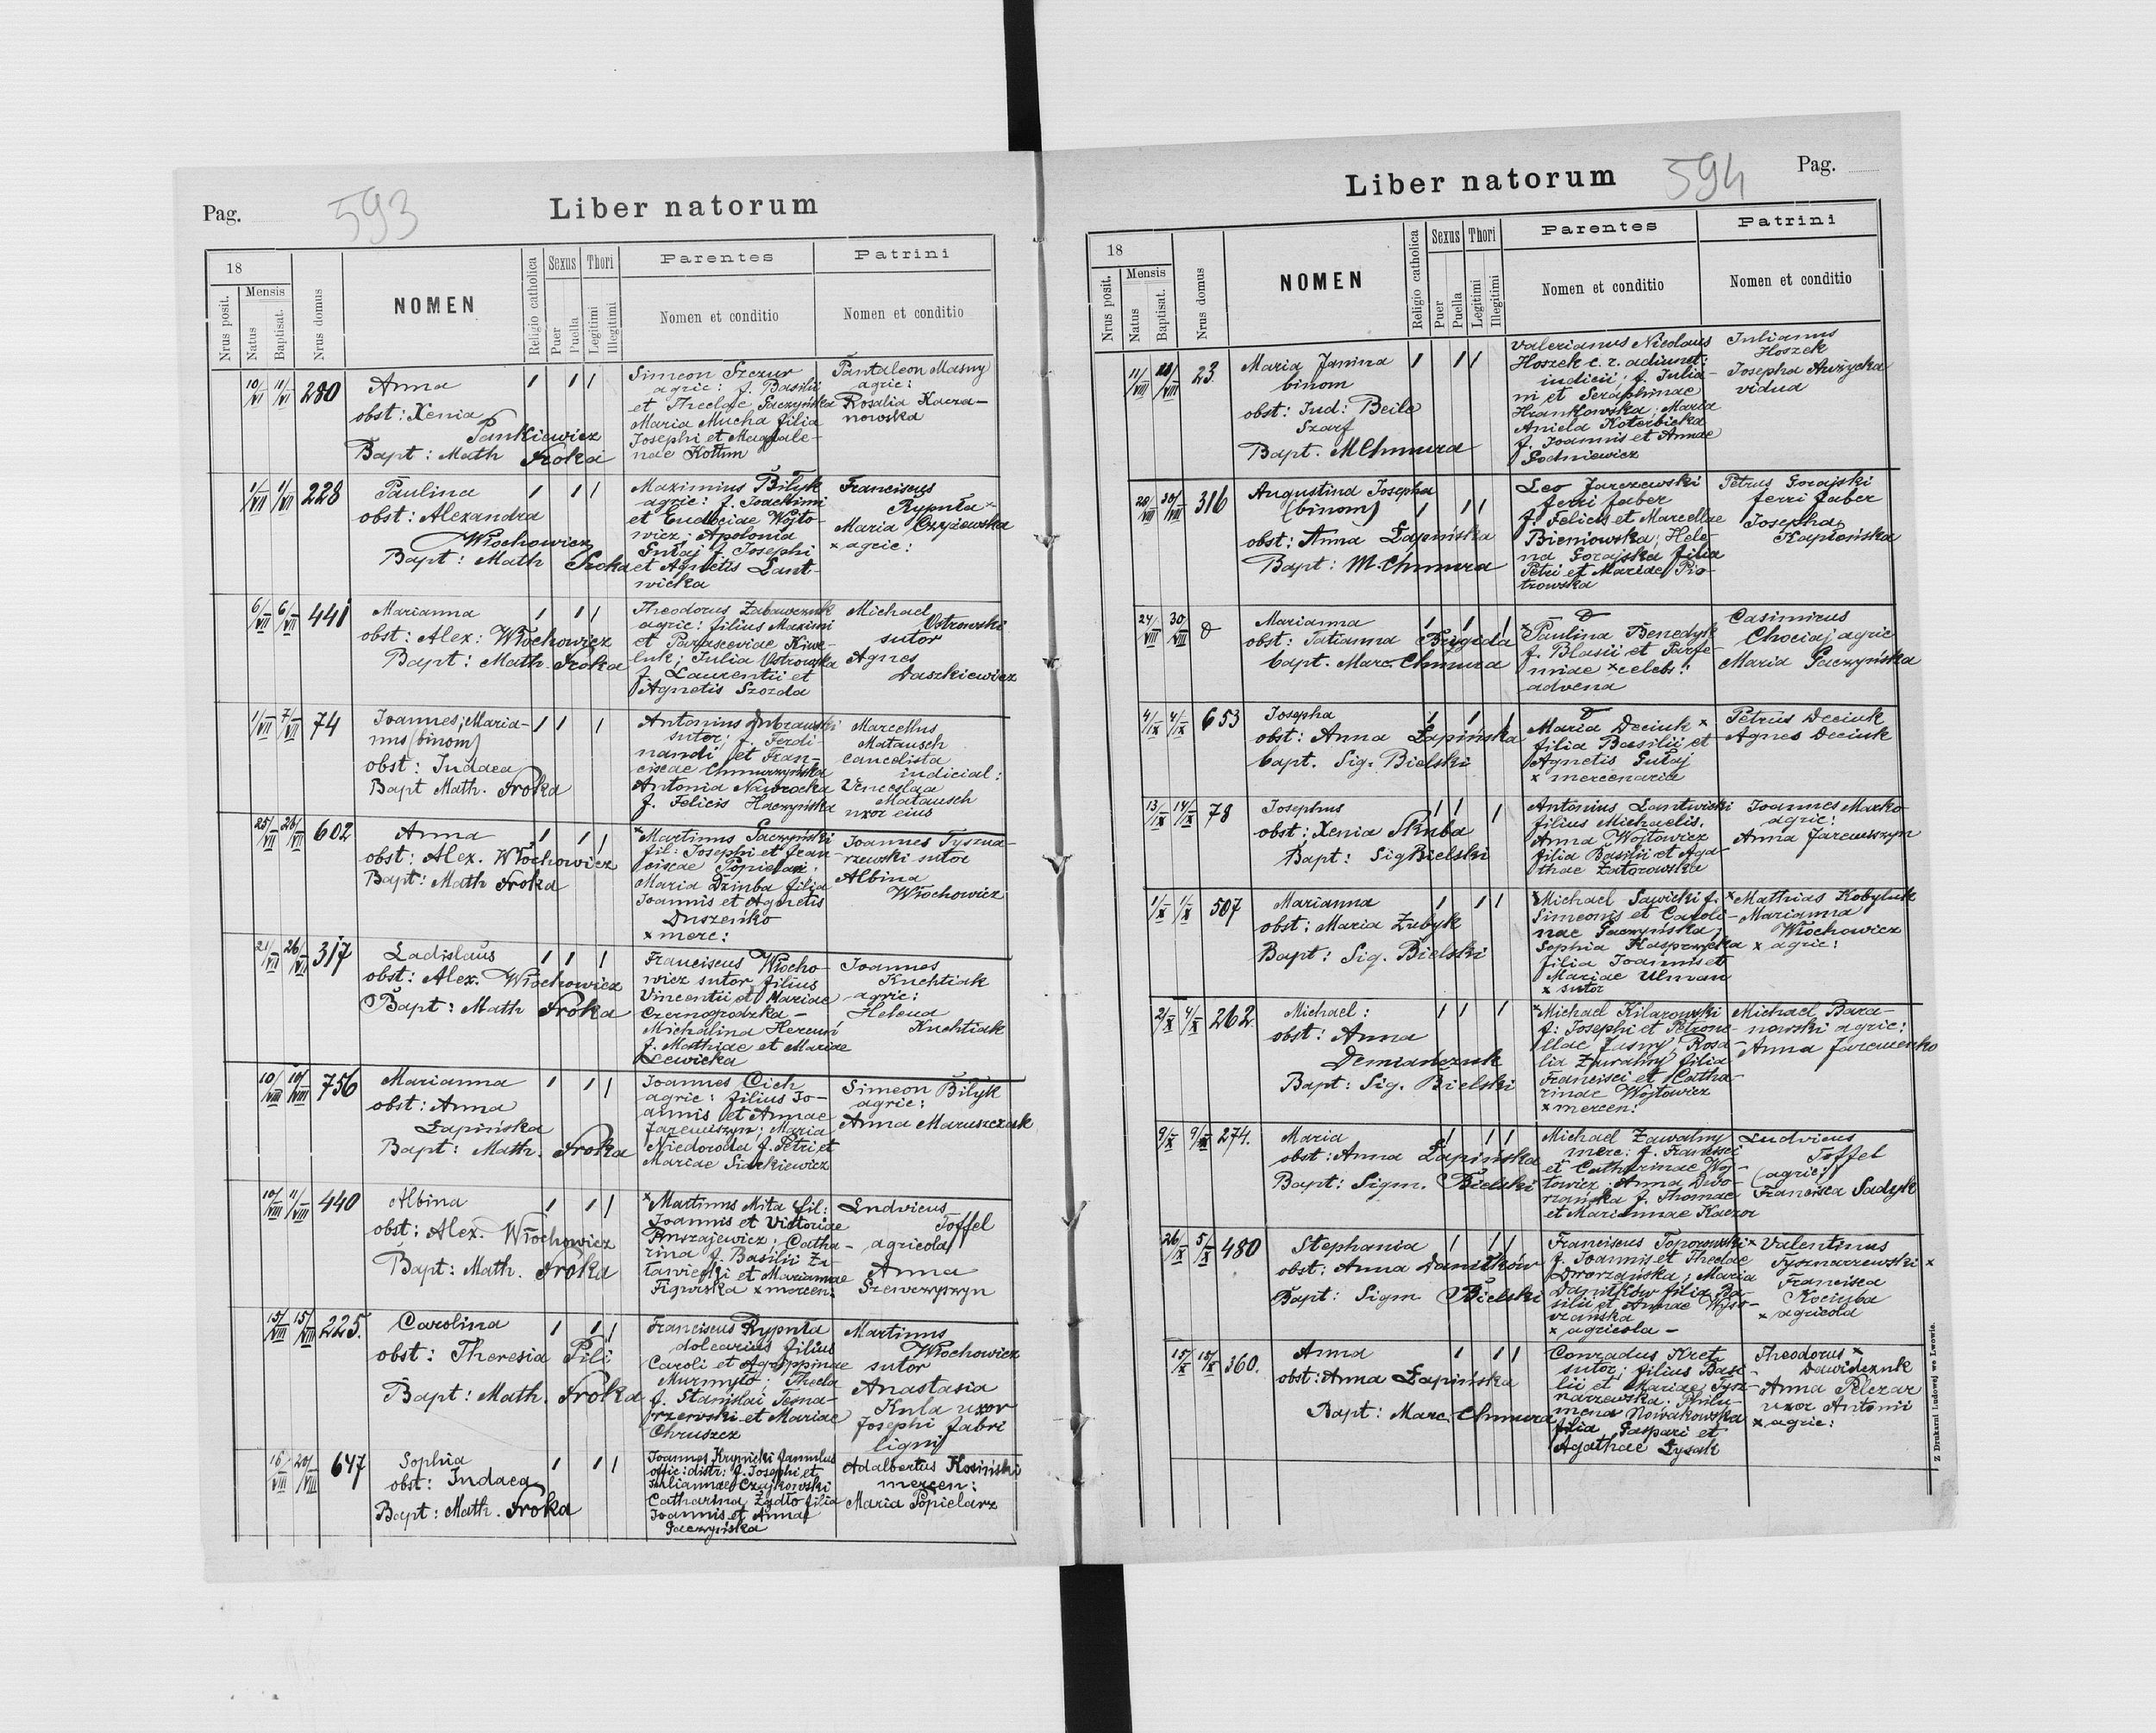 Pag.
593
Liber natorum
18
Nrus posit.
Mensis
Natus
Baptisat.
Nrus domus
NOMEN
Religio catholica
Sexus
Puer
Puella
Thori
Legitimi
Illegitimi
Parentes
Nomen et conditio
Patrini
Nomen et conditio
10/VI 11/VI 280
Anna
obst: Xenia
Pankiewicz
Bapt: Math Sroka
Simeon Szczur
agric: f. Basilii
et Theclae Gaczyńska
Maria Mucha filia
Josephi et Magdale-
nae Kottun
Pantaleon Masny
agric:
Rosalia Kacza-
nowska
1/VII 1/VII 228
Paulina
obst: Alexandra
Włochowicz
Bapt: Math Sroka
Maximius Bilyk
agric: f. Joachimi
et Eudociae Wojto-
wicz; Apolonia
Gułaj f. Josephi
et Agnetis Lant-
wicka
Franciscus
Rypuła ×
Maria Czyżewska
× agric:
6/VII 6/VII 441
Marianna
obst: Alex: Włochowicz
Bapt: Math. Sroka
Theodorus Zabawczuk
agric: filius Maximi
et Parasceviae Kiwa-
luk; Julia Ostrowska
f. Laurentii et
Agnetis Szozda
Michael
Ostrowski
sutor
Agnes
Daszkiewicz
1/VII 7/VII 74
Joannes; Maria-
nus (binom)
obst: Judaea
Bapt Math. Sroka
Antonius Dubrawski
sutor; f. Ferdi-
nandi et Fran-
ciscae Chmurzyńska
Antonia Nawrocka
f. Felicis Haczyńska
Marcellus
Matausch
cancelista
iudicial:
Venceslaa
Matausch
uxor eius
25/VII 26/VII 602
Anna
obst: Alex. Włochowicz
Bapt: Math Sroka
× Martinus Gaczyński
fil: Josephi et Fran-
ciscae Popielarz;
Maria Dziuba filia
Joannis et Agnetis
Duszeńko
× merc:
Joannes Tysma-
rzewski sutor
Albina
Włochowicz
21/VII 26/VII 317
Ladislaus
obst: Alex. Włochowicz
Bapt: Math Sroka
Franciscus Włocho-
wicz sutor filius
Vincentii et Mariae
Czernogrodzka -
Michalina Hercuń
f. Mathiae et Mariae
Lewicka
Joannes
Kuchtiak
agric:
Helena
Kuchtiak
10/VIII 10/VIII 756
Marianna
obst: Anna
Łapińska
Bapt: Math. Sroka
Joannes Cich
agric: filius Jo-
annis et Annae
Jaremiszyn; Maria
Niedoroda f. Petri et
Mariae Siaćkiewicz
Simeon Bilyk
agric:
Anna Maruszczak
10/VIII 11/VIII 440
Albina
obst: Alex. Włochowicz
Bapt: Math. Sroka
× Martinus Mita fil:
Joannis et Victoriae
Catha-
rina f. Basilii Za-
et Mariannae
× mercen:
Ludvicus
Toffel
agricola
Anna
Szewczyszyn
15/VIII 15/VIII 225.
Carolina
obst: Theresia Pili
Bapt: Math. Sroka
Franciscus Rypuła
dolearius filius
Caroli et Agrippinae
Murmyło; Thecla
f. Stanislai Tysma-
rzewski et Mariae
Chruszcz
Martinus
Włochowicz
sutor
Anastasia
Kula uxor
Josephi fabri
ligni
16/VIII 20/VIII 647
Sophia
obst: Judaea
Bapt: Math. Sroka
Joannes Krynicki famulus
offic: distr: f. Josephi et
Juliannae Czajkowski
Catharina Żądło filia
Joannis et Annae
Gaczyńska
Adalbertus Kosiński
mercen:
Maria Popielarz
Liber natorum
594
Pag.
18
Nrus posit.
Mensis
Natus
Baptisat.
Nrus domus
NOMEN
Religio catholica
Sexus
Puer
Puella
Thori
Legitimi
Illegitimi
Parentes
Nomen et conditio
Patrini
Nomen et conditio
11/VIII 28/VIII 23.
Maria Janina
binom
obst: Jud: Beile
Szarf
Bapt. MChmura
Valerianus Nicolaus
Hoszek c. r. adiunct:
iudicii; f. Julia-
ni et Seraphinae
Hrankowska; Maria
Aniela Koterbicka
f. Joannis et Annae
Godniewicz
Julianus
Hoszek
Josepha
vidua
28/VIII 30/VIII 316
Augustina Josepha
(binom)
obst: Anna Łapińska
Bapt: M. Chmura
Leo Jarczewski
ferri faber
f. Felicis et Marcellae
Bieniowska; Hele-
na Gorajska filia
Petri et Mariae Pio-
trowska
Petrus Gorajski
ferri faber
Josepha
Kapłońska
24/VIII 30/VIII
Marianna
obst: Tatianna Brygida
bapt. Marc. Chmura
× Paulina Benedyk
f. Blasii et Parfe-
niae × celebs:
advena
Casimirus
Chociaj agric
Maria Gaczyńska
4/IX 4/IX 653
Josepha
obst: Anna Łapińska
bapt. Sig. Bielski
Maria Deciuk ×
filia Basilii et
Agnetis Gułaj
× mercenaria
Petrus Deciuk
Agnes Deciuk
13/IX 14/IX 78
Josephus
obst: Xenia Skuba
Bapt: Sig Bielski
Antonius Lantwicki
filius Michaelis,
Anna Wojtowicz
filia Basilii et Aga-
thae Zatorowska
Joannes Marko
agric:
Anna Jaremiszyn
1/X 1/X 507
Marianna
obst: Maria Zubyk
Bapt: Sig. Bielski
× Michael Sawicki f.
Simeonis et Caroli-
nae Gaczyńska;
Sophia Kasprzycka
filia Joannis et
Mariae Ulman
× sutor
× Mathias Kobyluk
Marianna
Włochowicz
× agric:
2/X 4/X 262.
Michael:
obst: Anna
Demiańczuk
Bapt: Sig. Bielski
× Michael Kilarowski
f: Josephi et Petrone-
llae Jasny; Rosa-
lia Zjuralny filia
Francisci et Catha-
rinae Wojtowicz
× mercen:
Michael Bara-
nowski agric:
Anna Jaremenko
9/X 9/X 274.
Maria
obst: Anna Łapińska
Bapt: Sigm. Bielski
Michael Zawalny
merc: f. Francisci
et Catharinae Woj-
towicz; Anna Dwo-
rzańska f. Thomae
et Mariannae Kaczor
Ludvicus
Toffel
(agric)
Francisca Sadyk
26/IX 5/X 480
Stephania
obst: Anna Daniłków
Bapt: Sigm Bielski
Franciscus Toporowski ×
f. Joannis et Theclae
Dworzańska; Maria
Daniłków filia Ba-
silii et Annae Wyso-
czańska
× agricola -
Valentinus
Tysmarzewski ×
Francisca
Kociuba
× agricola
15/X 15/X 360.
Anna
obst: Anna Łapińska
Bapt: Marc. Chmura
Conradus Kret
sutor; filius Basi-
lii et Mariae Tysz-
narzewska; Philo-
mena Nowakowska
filia Gaspari et
Agathae Łysak
Theodorus ×
Dawidczuk
Anna Pelczar
uxor Antonii
× agric:
Z Drukarni Ludowej we Lwowie.